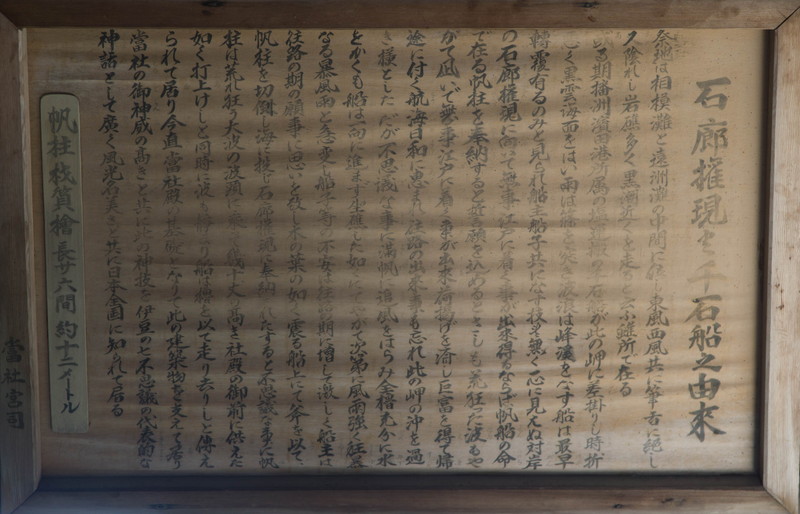 石廊権現と千石船之由来
奈地は相模灘と遠州灘の中間に位し東風西風共に筆舌に絶し
夕隠れし岩礁多く黒潮近くを走ると云ふ難所で在る
る期播州濱田港所属の が此の岬に差掛りし時折
しく黒雲海面をはい雨は を突き波浪は峰 をなす船は最早
轉覆有るのみと見られ船主船子共になす技も無く一心に見えぬ対岸
の石廊権現に向って無事江戸に着く事が出来得るならば帆船の命
で在る帆柱を奉納すると誓願を込めるとさしも荒狂った波もや
がて凪いで無事江戸に着く事が出来荷揚げを済し巨富を得て帰
途に付く航海日和に恵まれ往路の出来事も忘れ此の岬の沖を過
き様とした だが不思議な事に満帆に追風をはらみ全櫓充分に水
とかくも船は一向に進ます生座した如 にてやがて次第に風雨強く狂
なる暴風雨と急変し船子等の不安は往路の期に増して激しく船主は
往路の期の願事に思いを残し木の葉の如く震る船上にて斧を以て
帆柱を切倒し海に投じ石廊権現に奉納 れたすると不思議な事に帆
柱は荒れ狂う大波の波頭に乗 幾十丈の高き社殿の御前に供えた
如く打上けしと同時に波も静 り船は櫓を以て走り去りしと傳え
られて居り今直當社殿 となって此の建築物を支えて居り
當社の御神威の高きと共に此の神技を伊豆の七不思議の代表的な
神話として廣く風光名美きと共に日本全国に知られて居る
帆柱伐質檜 長サ六間 約十二メートル
當社宮司